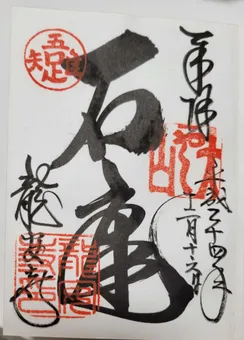 奉拝
平成二十四年
十二月十六日
石庭
吾唯足知
龍安寺